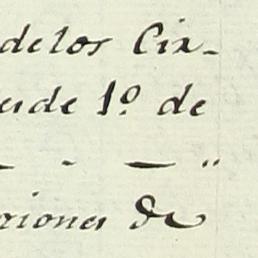 delos Cir-
esde 1º. de
— - — "
xiones de